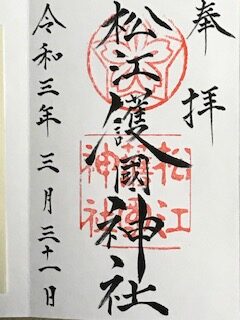 奉拝
松江護國神社
令和三年三月三十一日
松江
護國
神社